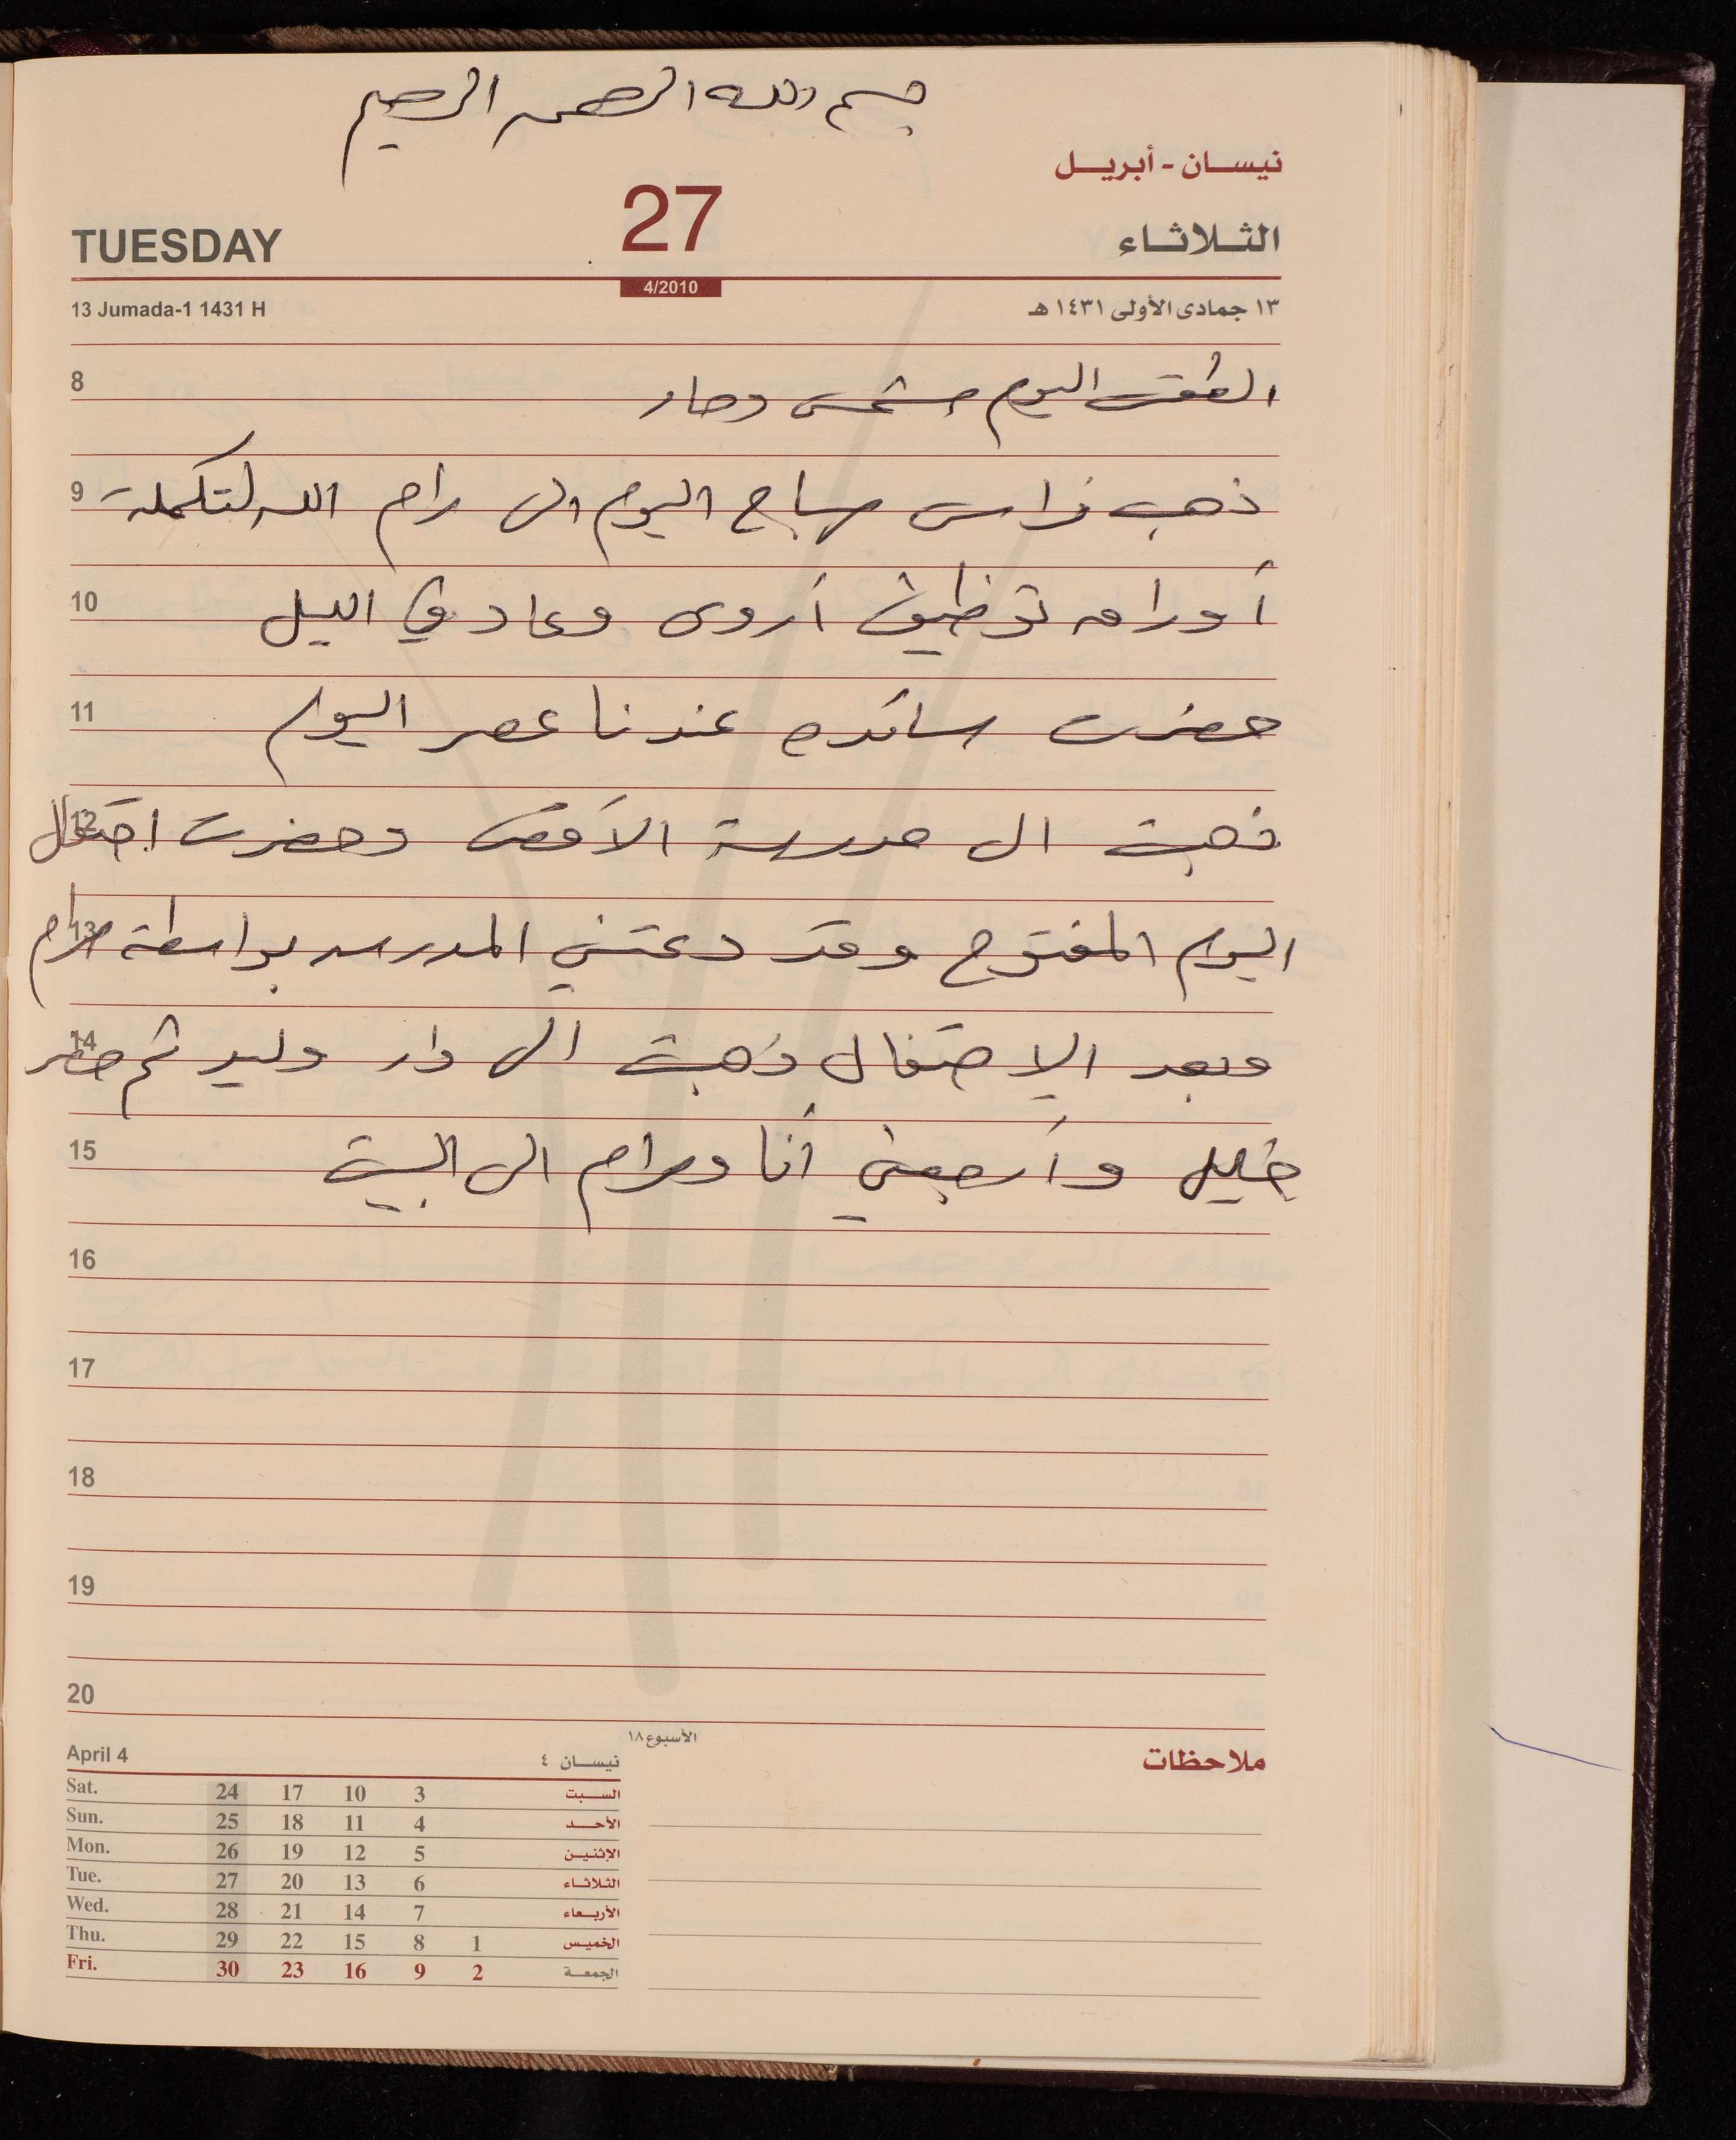 بسم الله الرحمن الرحيم
نيسان - أبريل
TUESDAY 27 الثلاثاء
4/2010
13 Jumada-1 1431 H ١٣ جمادى الأولى ١٤٣١ هـ
8 الطقس اليوم مشمس وحار
9 ذهب فراس صباح اليوم الى رام الله لتكملة
10 أوراق توظيف أروى وعاد في الليل
11 حضرت سائده عندنا عصر اليوم
12 ذهبت الى مدرسة الأقصى وحضرت احتفال
13 اليوم المفتوح وقد دعتني المدرسه بواسطة مرام
14 وبعد الإحتفال ذهبت الى دار وليد ثم حضر
15 خليل وأرجعني أنا ومرام الى البيت
16
17
18
19
20
الأسبوع ١٨
ملاحظات
April 4 نيسان ٤
Sat. 24 17 10 3 السبت
Sun. 25 18 11 4 الأحد
Mon. 26 19 12 5 الإثنين
Tue. 27 20 13 6 الثلاثاء
Wed. 28 21 14 7 الأربعاء
Thu. 29 22 15 8 1 الخميس
Fri. 30 23 16 9 2 الجمعة